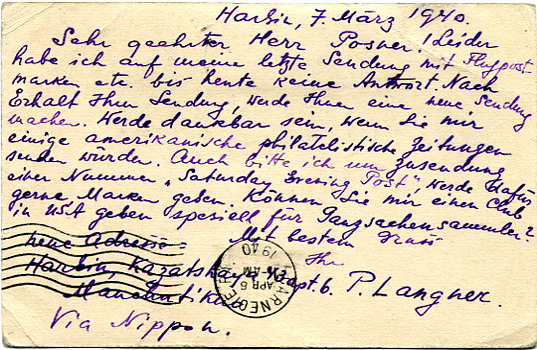 Harbin, 7 März 1940.
Sehr geehrter Herr Posner! Leider
habe ich auf meine letzte Sendung mit Flugpost
marken etc. bis heute keine Antwort. Nach
Erhalt Ihrer Sendung, werde Ihnen eine neue Sendung
machen. Werde dankbar sein, wenn Sie mir
einige amerikanische philatelistische Zeitungen
senden würden. Auch bitte ich um Zusendung
einer Nummer „Saturday Evening Post", werde dafür
gerne Marken geben. Können Sie mir einen Club
in USA geben speziell für Ganzsachensammler?
Mit bestem Gruss
neue Adresse: Ihr
Harbin, Kazatshaya apt. 6. P. Langner.
Manchutikuo
Via Nippon.
CARNEGIE
APR 8
AM
1940